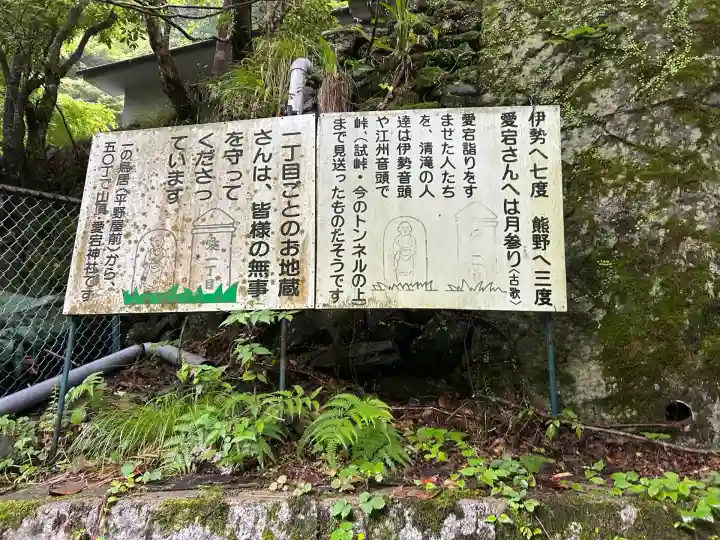 伊勢へ七度 熊野へ三度
愛宕さんへは月参り〈古歌〉
愛宕詣りをす
ませた人たち
を、清滝の人
達は伊勢音頭
や江州音頭で
峠、（試峠・今のトンネルの上）
まで見送ったものだそうです
一丁目ごとのお地蔵
さんは、皆様の無事
を守って
くださっ
ています
一の鳥居（平野屋前）から、
五〇丁で山頂・愛宕神社です
一丁目